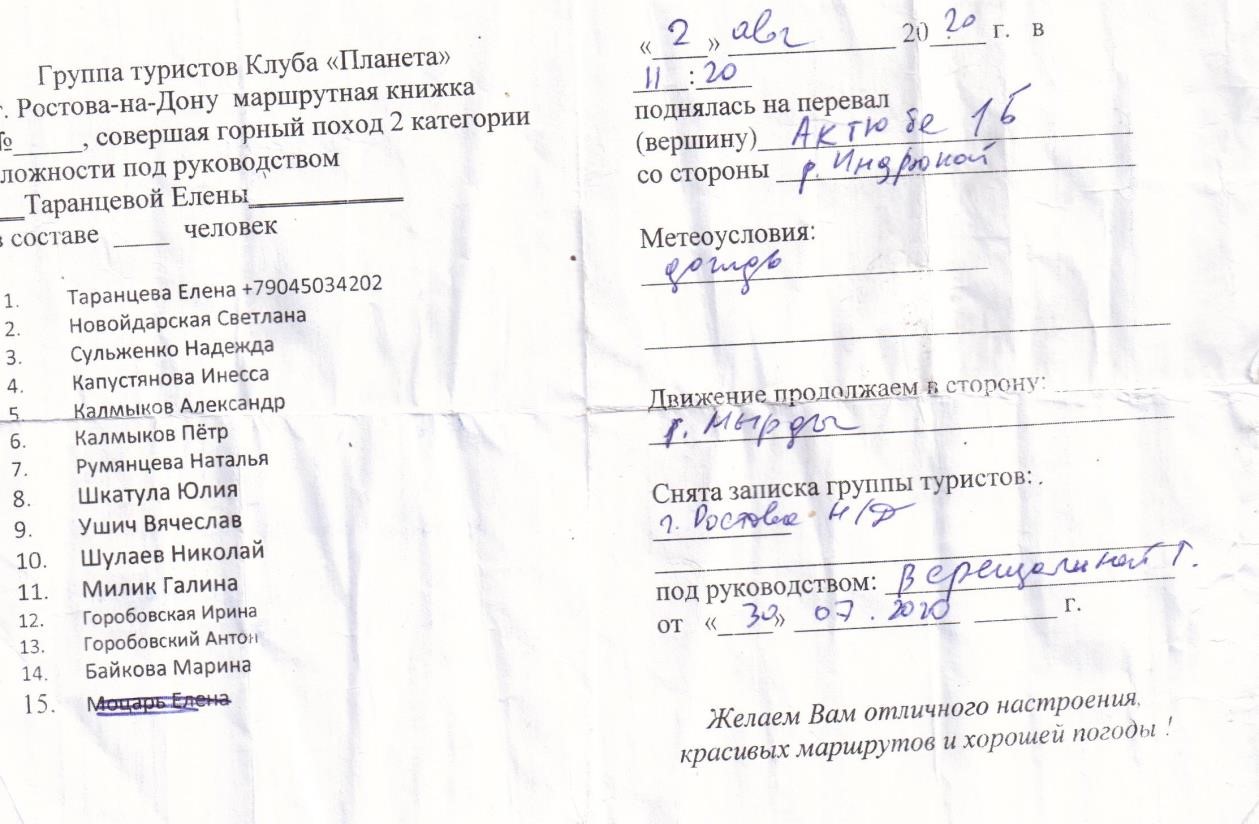 Группа туристов Клуба «Планета»
г. Ростова-на-Дону маршрутная книжка
№_____, совершая горный поход 2 категории
ложности под руководством
__Таранцевой Елены___________
в составе ____ человек
1. Таранцева Елена +79045034202
2. Новойдарская Светлана
3. Сульженко Надежда
4. Капустянова Инесса
5. Калмыков Александр
6. Калмыков Пётр
7. Румянцева Наталья
8. Шкатула Юлия
9. Ушич Вячеслав
10. Шулаев Николай
11. Милик Галина
12. Горобовская Ирина
13. Горобовский Антон
14. Байкова Марина
15. Моцарь Елена
« 2 » авг 2020 г. в
11 : 20
поднялась на перевал
(вершину) Актюбе 1Б
со стороны р. Индрюкой
Метеоусловия:
дождь
Движение продолжаем в сторону:
г. Мырды
Снята записка группы туристов: .
г. Ростова Н/Д
под руководством: Верещагиной Г.
от « 30 » 07 . 2020 г.
Желаем Вам отличного настроения,
красивых маршрутов и хорошей погоды !